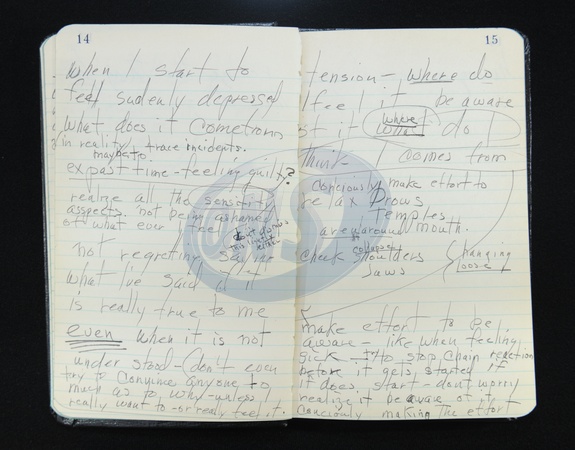 14
When I start to
feel suddenly depressed
What does it come from
in reality? trace incidents.
maybe to
ex past time - feeling guilty?
realize all the sensitivity
asspects. not being ashamed
of what ever I feel
don't dismiss
this lightly
either
not regreting saying
what I've said if it
is really true to me
even when it is not
under stood - (don't even
try to convince anyone to
much as to why - unless I
really want to - or realy feel it.
15
tension - where do
I feel it be aware
of it where do I
think I comes from
conciously make effort to
relax Brows
Temples
area around mouth.
collapse
check shoulders hanging
Jaws loose
make effort to be
aware - like when feeling
sick - to stop chain reaction
before it gets started if
it does start - dont worry
realize it be aware of it
conciously making the effort